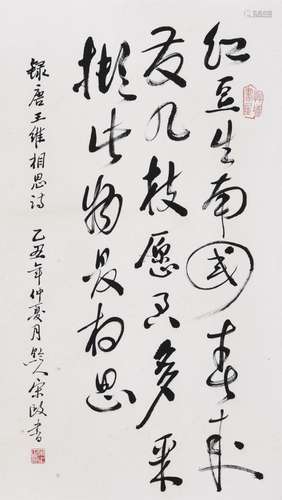 红豆生南国春来
发几枝愿君多采
撷此物最相思
录唐王维相思诗
乙丑年仲夏月黔人宋政书